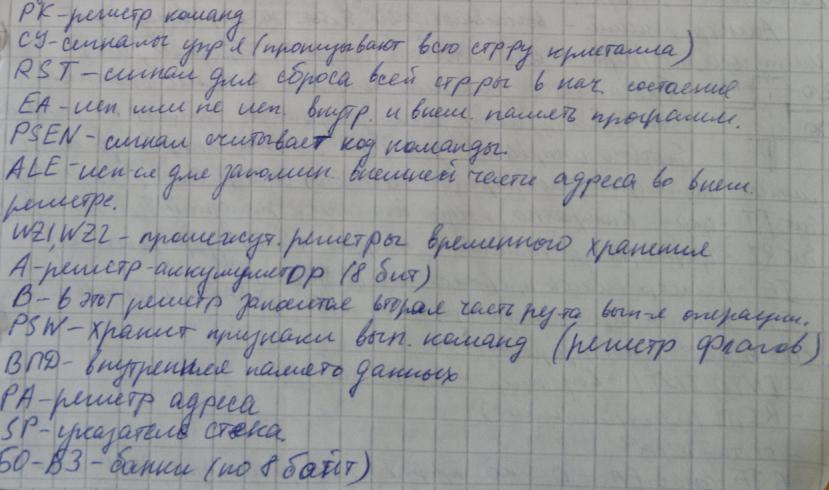 РК-регистр команд
СУ-сигналы упр-я (пронизывают всю стр-ру кристалла)
RST-сигнал для сброса всей стр-ры в нач. состояние
EA-исп. или не исп. внутр. и внеш. память программ.
PSEN-сигнал считывает код команды.
ALE-исп-ся для запомин. внешней части адреса во внеш.
регистре.
WZ1, WZ2 - промежут. регистры временного хранения
A-регистр-аккумулятор (8 бит)
B-в этот регистр запоместся вторая часть рез-та вып-я операции.
PSW-хранит признаки вып. команд (регистр флагов)
ВПД-внутренняя память данных
РА-регистр адреса
SP-указатель стека
Б0-В3-банки (по 8 байт)